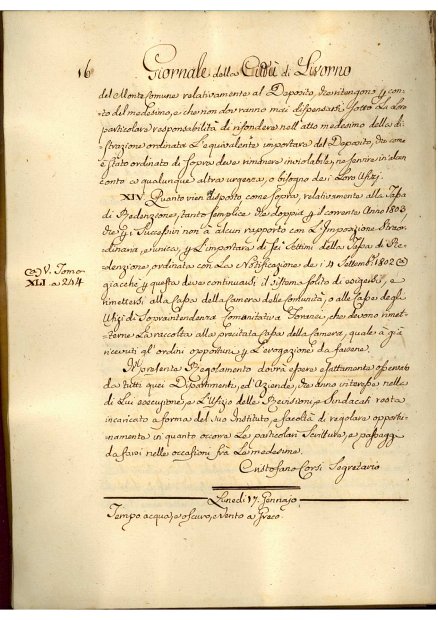 16
Giornale della Città di Livorno
del Monte Comune relativamente al Deposito, che ritengono p con-
to del medesimo, e che non dovranno mai dispensarsi sotto la loro
particolare responsabilità di rifondere nell'atto medesimo della di-
strazione ordinata l'equivalente importare del Deposito, che come
è stato ordinato di sopra deve rimanere inviolabile, ne servire in verun
conto a qualunque altra urgenza, o bisogno dei loro Ufizj.
XIV. Quanto vien disposto come sopra, relativamente alla Tassa
di Redenzione, tanto semplice che doppia p il corrente Anno 1803,
che p i Sucessivi non à alcun rapporto con l'Imposizione Straor-
dinaria, e unica, p l'importare di sei Settimi della Tassa di Re-
denzione, ordinata con la Notificazione de i 4 Settembre 1802 (a)
giacchè p questa deve continuarsi il sistema solito di esigersi, e
rimettersi alla Cassa della Camera delle Comunità, o alle Casse degli
Ufizj di Soprantendenza Comunitativa Foranei, che devono rimet-
terne la raccolta alla precitata Cassa della Camera, quale à già
ricevuti gl'ordini opportuni p l'erogazione da farsene.
(a) V. Tomo
XLI a 244
Il presente Regolamento dovrà essere esattamente osservato
da tutti quei Dipartimenti, ed Aziende, che anno interesse nella
di lui esecuzione, e l'Ufizio delle Revisioni, e Sindacati resta
incaricato a forma del suo Instituto, e facoltà di regolare opportu-
namente in quanto occorra le particolari Scritture, e passaggi
da farsi nelle occasioni frà le medesime.
Cristofano Corsi Segretario
Lunedì 17. Gennajo
Tempo acqua, e oscuro, e vento a Greco.